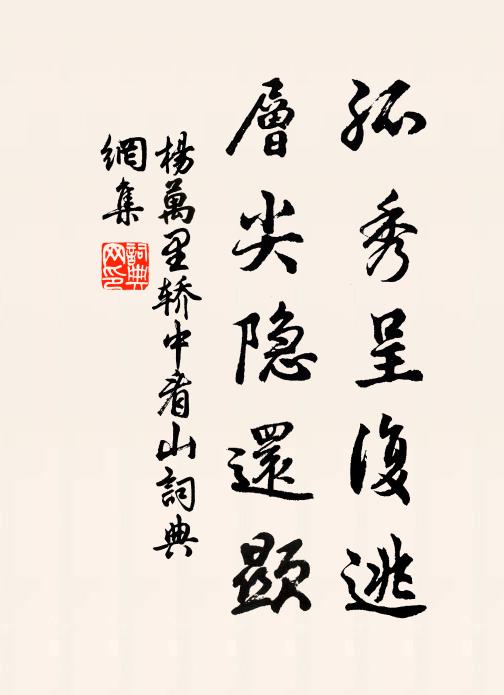 孤秀呈復逃
層尖隐還顕
楊萬里轿中看山詞典
網集
詞典網印